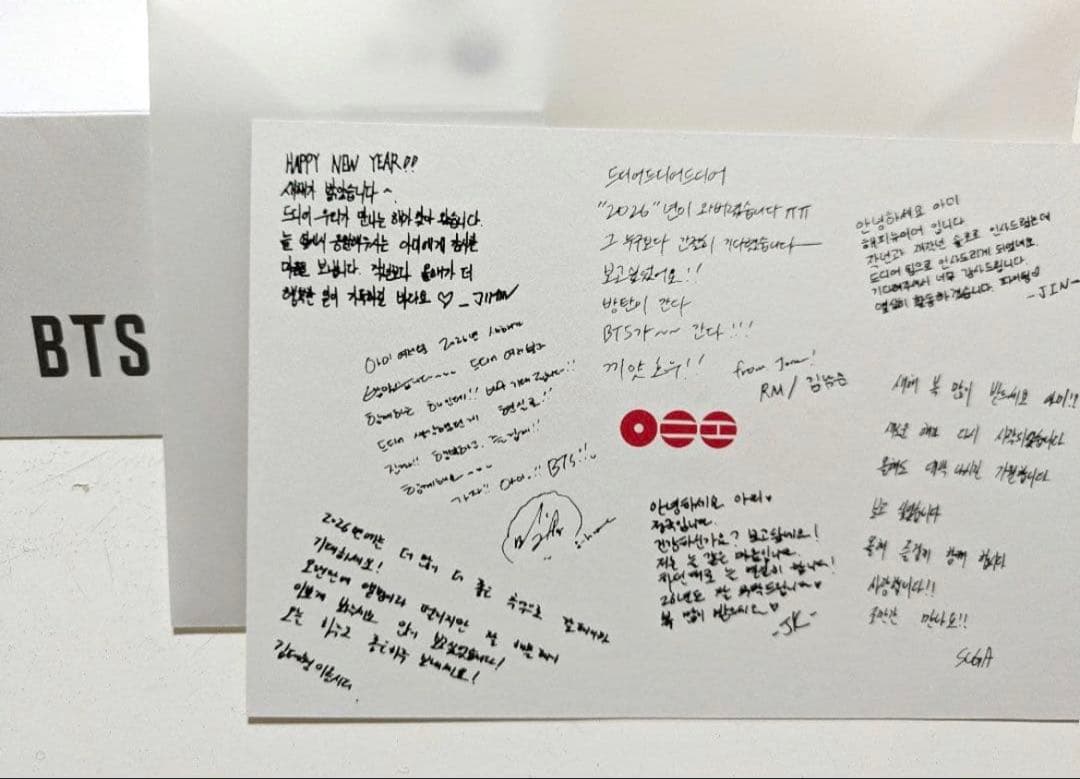 BTS
HAPPY NEW YEAR!!
새해가 밝았습니다~
드디어 우리가 만나는 해가 찾아 왔습니다.
늘 옆에서 응원해주시는 아미에게 감사한
마음을 보냅니다. 작년보다 올해가 더
행복한 일이 가득하길 바라요 ♡ _JIMIN
드디어드디어드디어
"2026"년이 와버렸습니다 ㅠㅠ
그 누구보다 간절히 기다렸습니다
보고싶었어요!!
방탄이 간다
BTS가~~ 간다!!!
끼얏호우!!
from Joon!
RM / 김남준
안녕하세요 아미
해피뉴이어 입니다
작년과 재작년 솔로로 인사드렸는데
드디어 팀으로 인사드리게 되었네요.
기다려주셔서 너무 감사드립니다.
열심히 활동하겠습니다. 파이팅
-JIN-
아미 여러분 2026년 새해가
밝았습니다~~~ 드디어 여러분과
함께하는 해인데!! 너무 기대됩니다!!
드디어 생각했던게 현실로!!
진짜!! 행복하고 즐겁게!!
함께해요~~~
가자!! 아미!! BTS!!
2026년에는 더 많이 더 좋은 추억으로
기대하세요!
오랜만에 앨범이라 떨리지만 잘
이쁘게 봐주시고 많이 보고싶었습니다!
오늘 하루도 좋은하루 보내세요!
김태형 이름시다.
안녕하세요 아미♥
정국입니다.
건강하신가요? 보고싶네요!
저는 늘 같은 마음입니다.
작년대로 늘 열심히 합니다!
26년도 잘 부탁드립니다♥
복 많이 받으세요♡
-JK-
새해 복 많이 받으세요 아미!!
새로운 해로 다시 시작되었습니다
올해도 대박 나시길 기원합니다
보고 싶었습니다
올해 즐겁게 함께 합시다
사랑합니다!!
조만간 만나요!!
SUGA